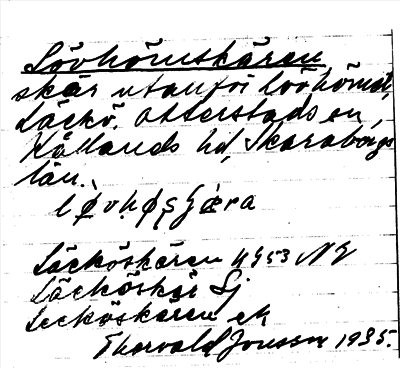 Lövhörnskären
skär utanför Lövhörnet,
Läckö. Otterstads sn,
Kållands hd, Skaraborgs
län.
Läcköskären NV
Läcköskär Sj
Lecköskären ek
Thorvald Jonsson 1935.